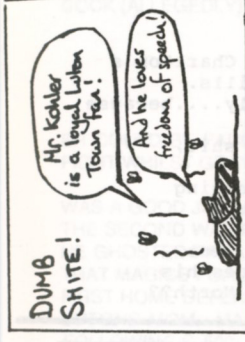 DUMB
SHITE!
Mr. Kohler
is a loyal Luton
Town fan!
And he loves
freedom of speech!